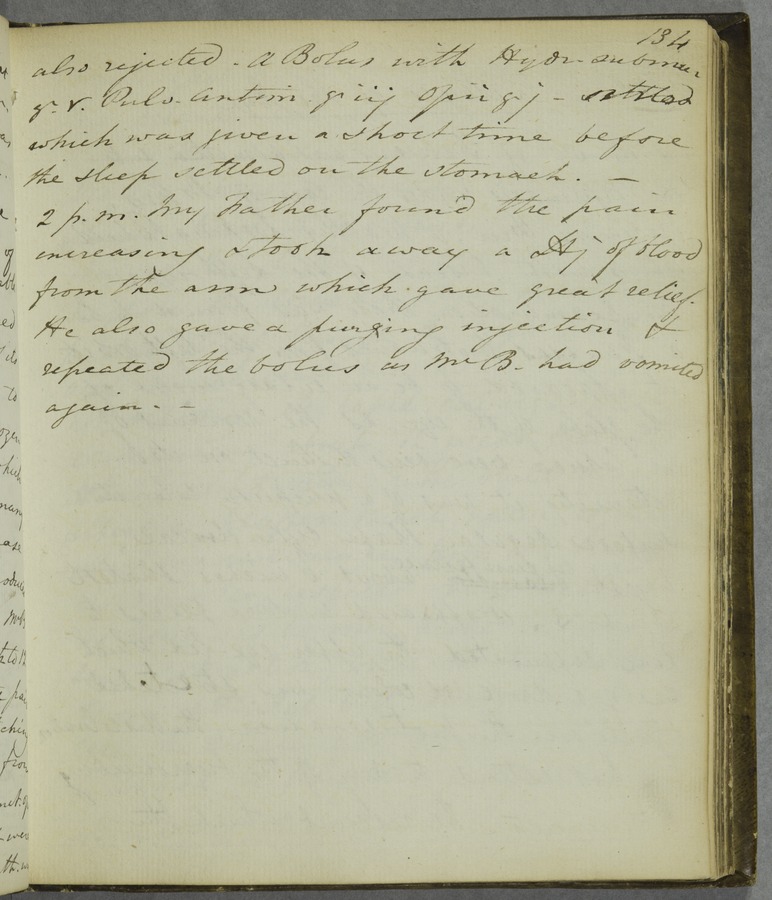 134
also rejected. A Bolus with Hydr. submur
gr. v. Pulv. Antim. gr iij Opii gr j - settled
which was given a short time before
the sleep settled on the stomach. -
2 p.m. My Father found the pain
increasing & took away a ℔j of blood
from the arm which gave great relief.
He also gave a purging injection &
repeated the bolus as Mr B. had vomited
again. -